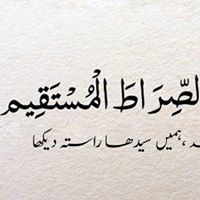 لصِّرَاطَ الْمُسْتَقِيم
،ہمیں سیدھا راستہ دیکھا